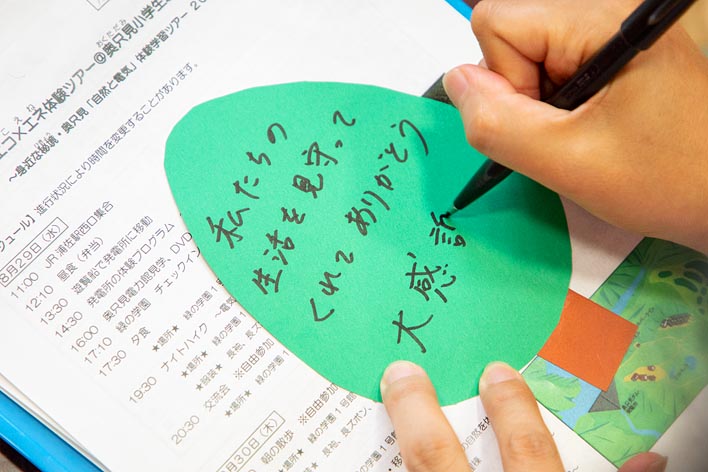 エコ×エネ体験ツアー@奥只見小学生
～身近な秘境・奥只見「自然と電気」体験学習ツアー 20
ジュール】進行状況により時間を変更することがあります。
8月29日(水)
11:00 JR浦佐駅西口集合
12:10 昼食(弁当)
13:30 遊覧船で発電所に移動
14:30 発電所の体験プログラム
16:00 奥只見電力館見学、DVD
17:10 緑の学園 チェックイン
17:30 夕食
★場所★ 緑の学園
19:30 ナイトハイク
★場所★ 緑の学園
★服装★ 長袖、長ズ
20:30 交流会 ※自由参加
★場所★ 緑の学園1号館
8月30日(木)
朝の散歩 ※自由参加
私たちの
生活を見守って
くれて ありがとう
大感謝